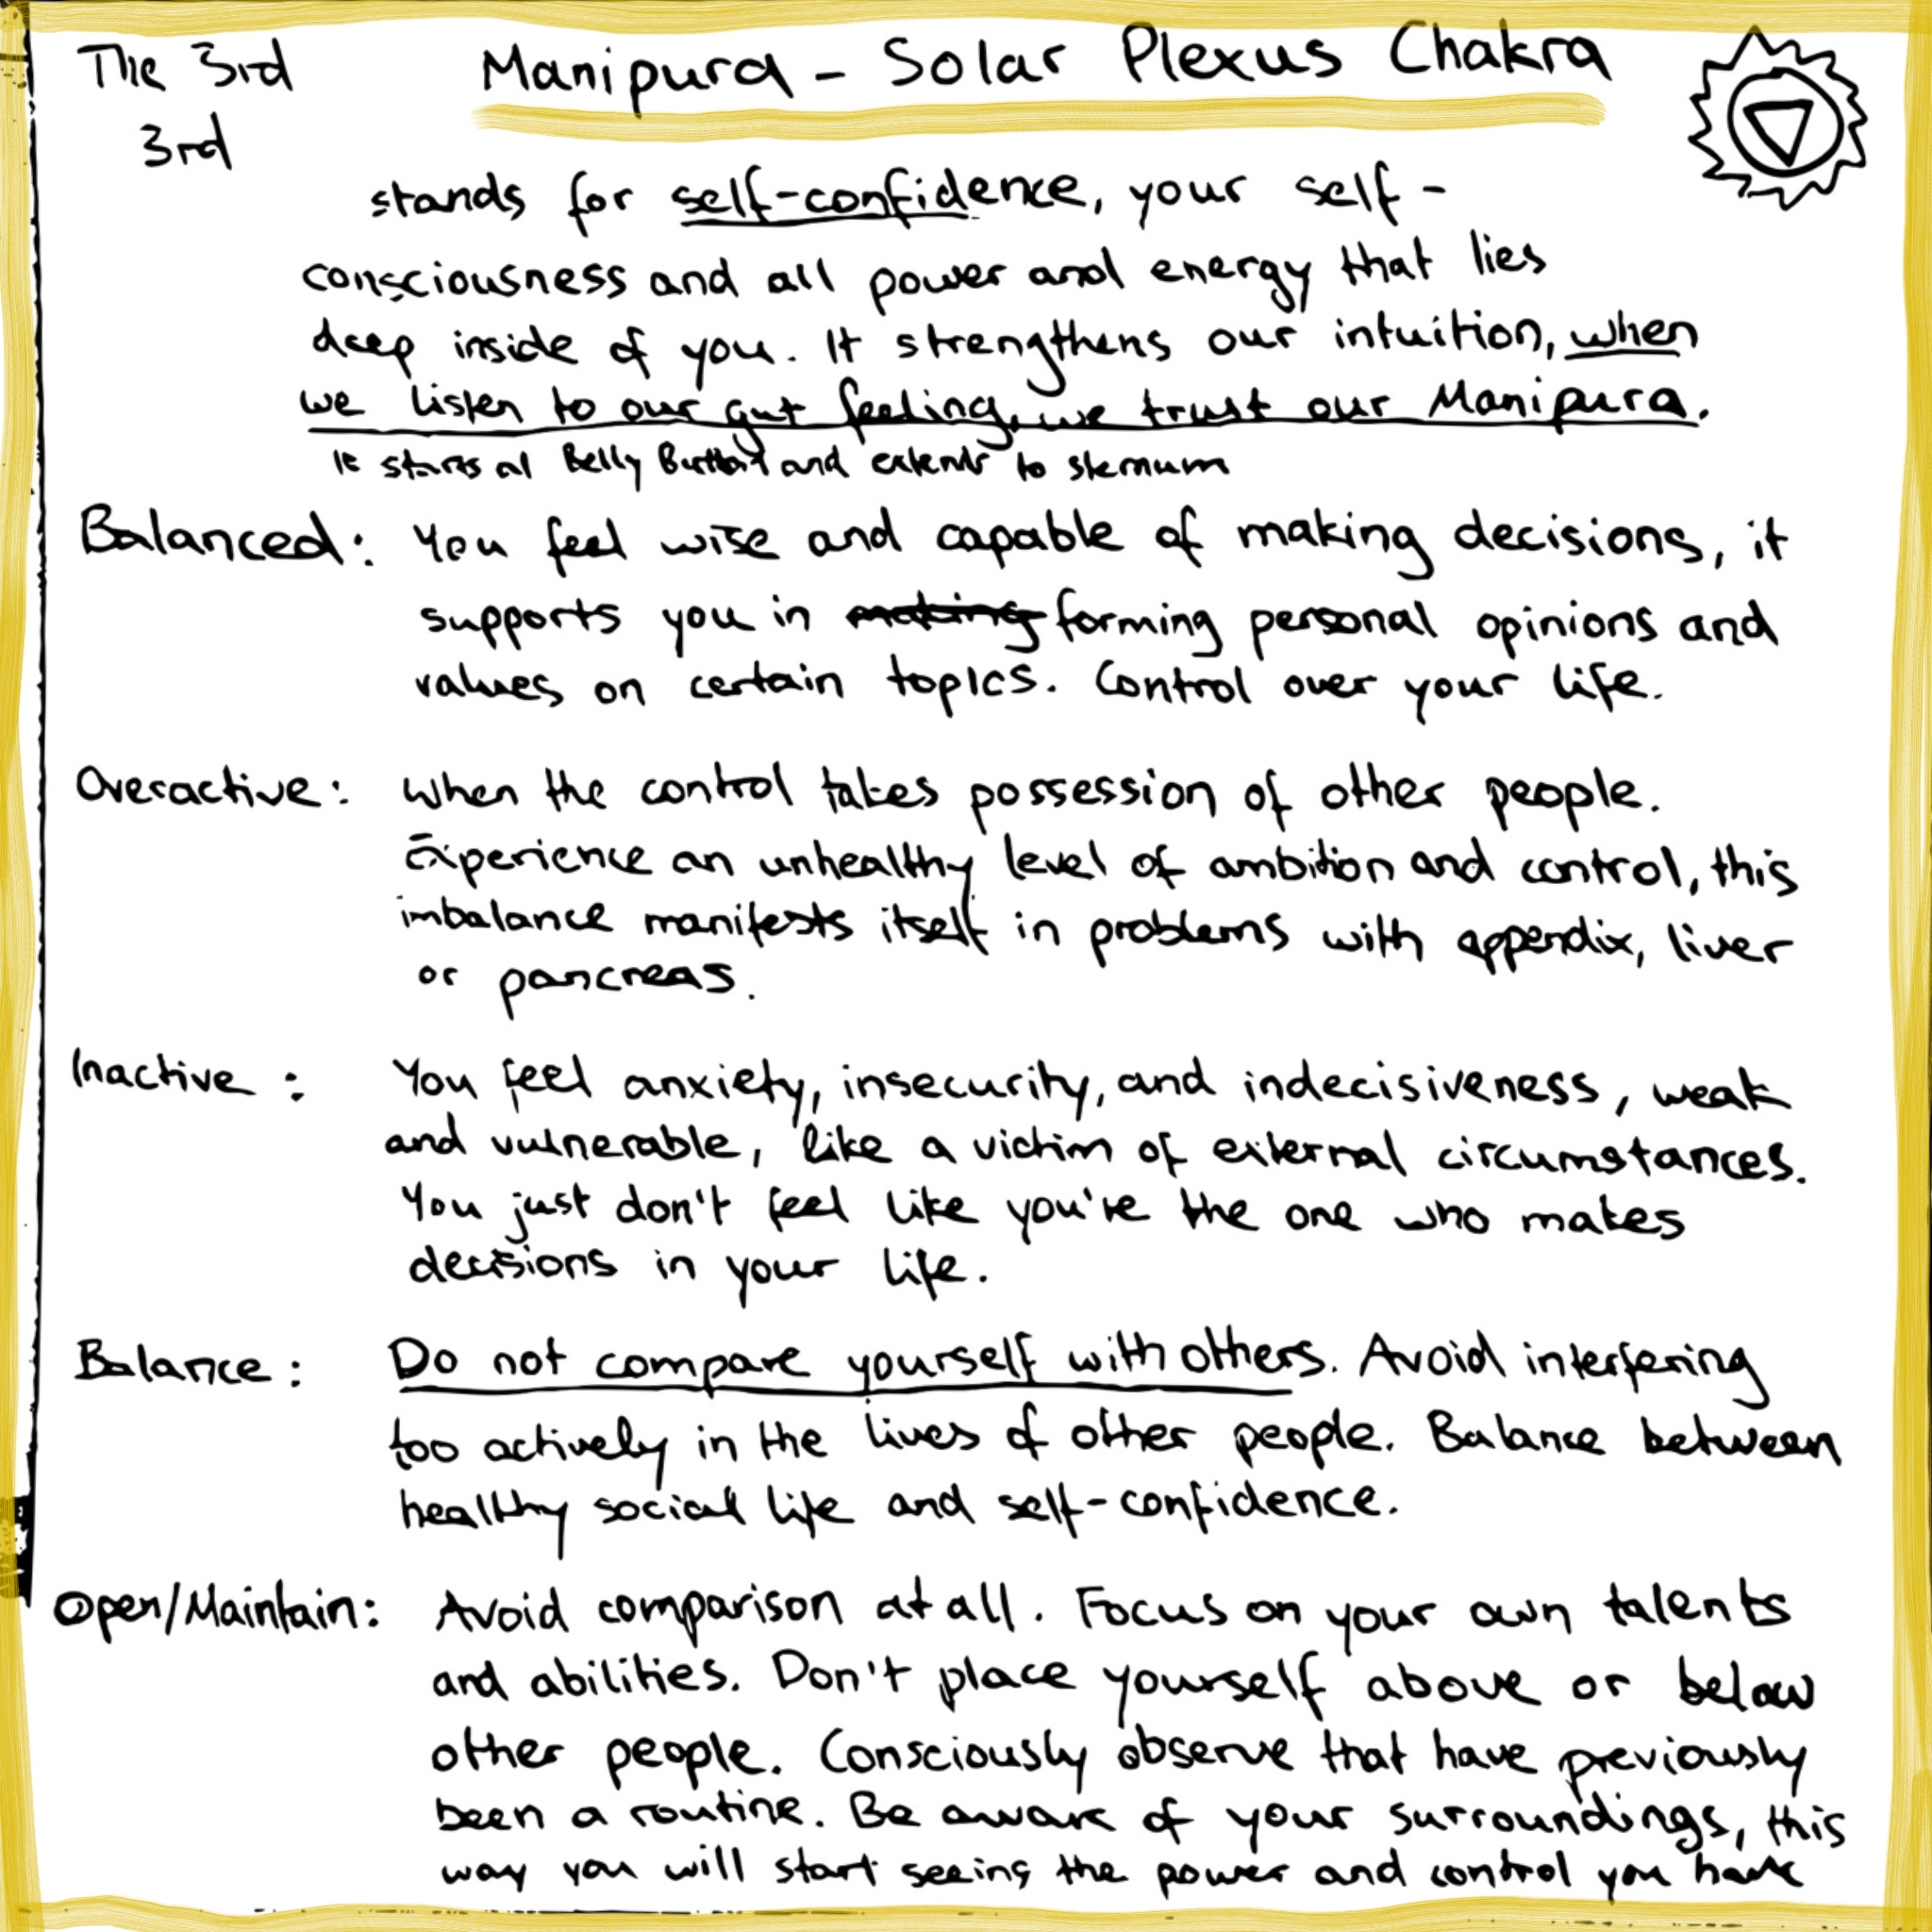 The 3rd Manipura - Solar Plexus Chakra
3rd
stands for self-confidence, your self-
consciousness and all power and energy that lies
deep inside of you. It strengthens our intuition, when
we listen to our gut feeling, we trust our Manipura.
It starts at Belly Button and extends to sternum
Balanced: You feel wise and capable of making decisions, it
supports you in making forming personal opinions and
values on certain topics. Control over your life.
Overactive: When the control takes possession of other people.
Experience an unhealthy level of ambition and control, this
imbalance manifests itself in problems with appendix, liver
or pancreas.
Inactive: You feel anxiety, insecurity, and indecisiveness, weak
and vulnerable, like a victim of external circumstances.
You just don't feel like you're the one who makes
decisions in your life.
Balance: Do not compare yourself with others. Avoid interfering
too actively in the lives of other people. Balance between
healthy social life and self-confidence.
Open/Maintain: Avoid comparison at all. Focus on your own talents
and abilities. Don't place yourself above or below
other people. Consciously observe that have previously
been a routine. Be aware of your surroundings, this
way you will start seeing the power and control you have